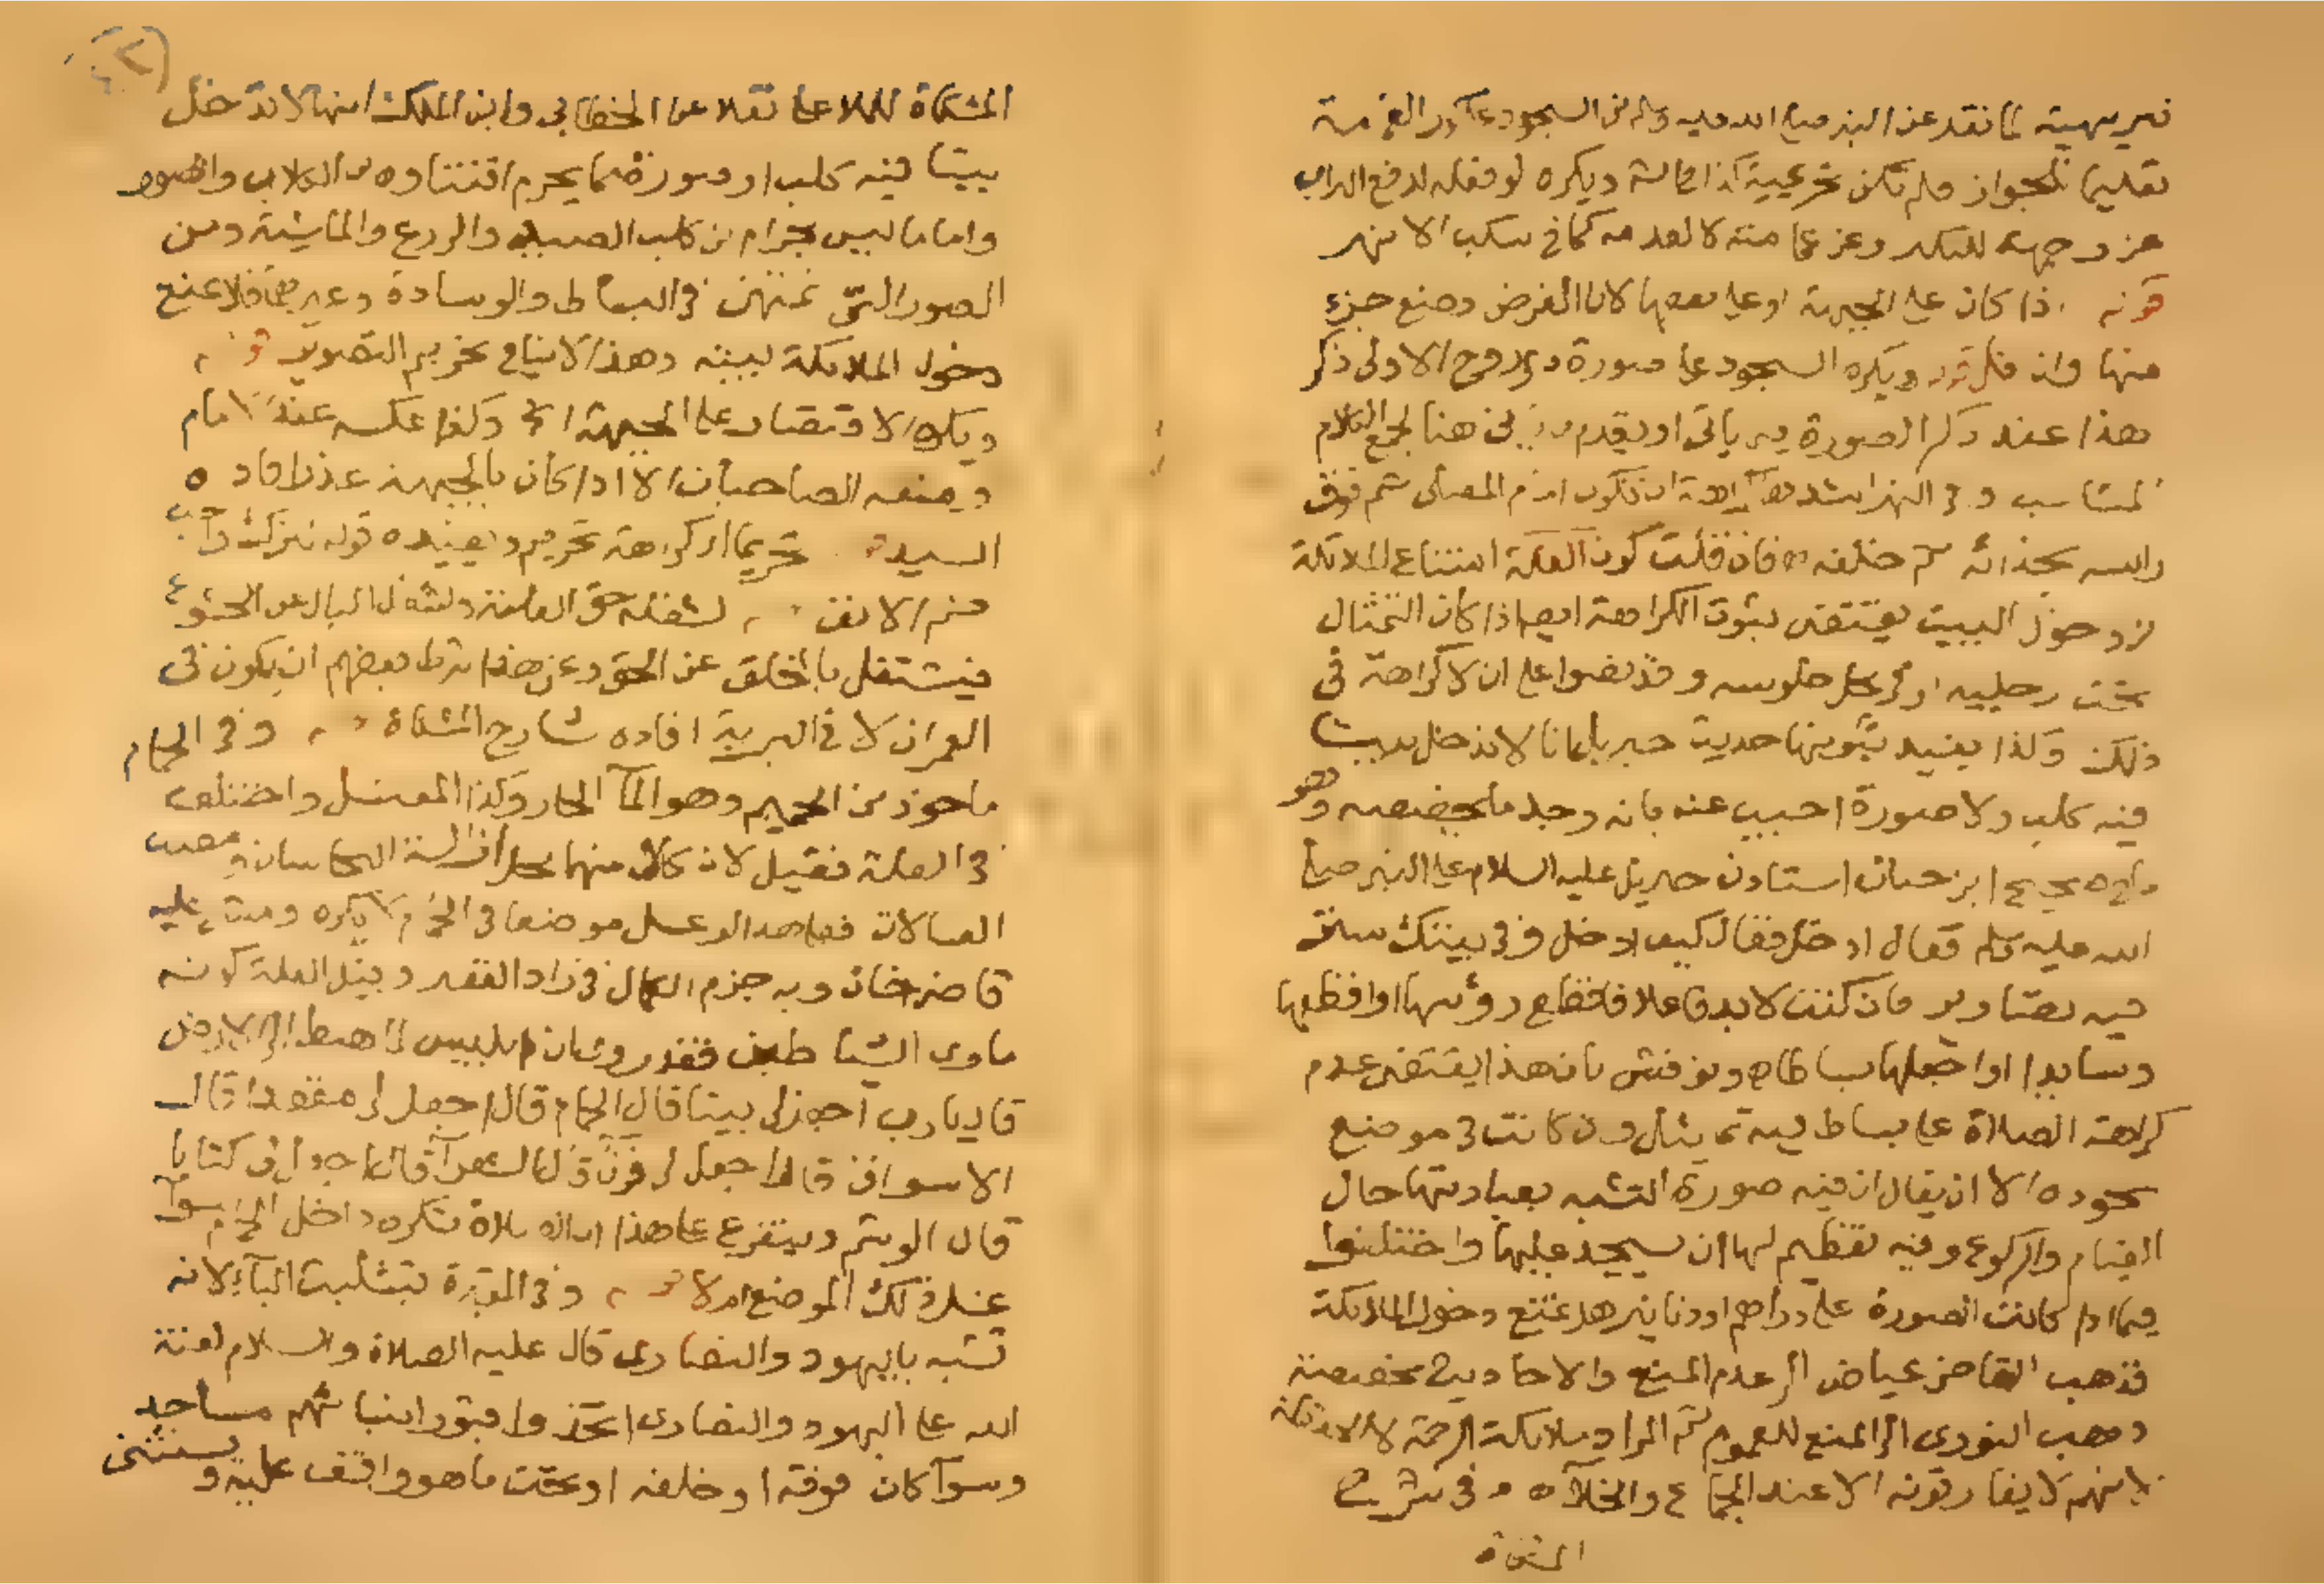 تعليما للجواز فلم تكن تحريمية كذا ويكره لو فعله لدفع التراب
عن وجهه للتكبر وعن عمامته لا لعدمه كما في سكب الانهر
قوله اذا كان على الجبهة او على بعضها لان الفرض وضع جزء
منها وان قل قوله ويكره السجود على صورة ذي روح الاولى ذكر
هذا عند ذكر الصورة هنا لجمع الكلام
المناسب وفي النهر اشدها كراهة ان تكون امام المصلي ثم فوق
راسه بحذائه ثم خلفه فان قلت كون العلة امتناع الملائكة
من دخول البيت يقتضي ثبوت الكراهة ايضا اذا كان التمثال
تحت رجليه او محل جلوسه وقد نصوا على ان لا كراهة في
ذلك وكذا يفيد ثبوتها حديث جبريل انا لا ندخل بيتا
فيه كلب ولا صورة اجيب عنه بانه وجد ما يخصصه وهو
ما في صحيح ابن حبان استاذن جبريل عليه السلام على النبي صلى
الله عليه وسلم فقال ادخل فقال كيف ادخل وفي بيتك ستر
فيه تصاوير فان كنت لا بد فاعلا فاقطع رؤسها او اقطعها
وسايد او اجعلها بسطا ونوقش بان هذا يقتضي عدم
كراهة الصلاة على بساط فيه تماثيل وان كانت في موضع
سجوده الا ان يقال ان فيه صورة التشبه بعبادتها حال
القيام والركوع وفيه تعظيم لها ان سجد عليها واختلفوا
فيما اذا كانت الصورة على دراهم او دنانير هل تمنع دخول الملائكة
فذهب القاضي عياض الى عدم المنع والاحاديث مخصصة
وذهب النووي الى المنع للعموم ثم المراد ملائكة الرحمة لا الحفظة
لانهم لا يفارقونه الا عند الجماع والخلاء وفي شرح
المشكاة
المشكاة للملا علي نقلا عن الخطابي وابن الملك انها لا تدخل
بيتا فيه كلب او صورة مما يحرم اقتناؤه من الكلاب والصور
واما ما ليس بحرام من كلب الصيد والزرع والماشية ومن
الصور التي تمتهن في البساط والوسادة وغيرهما فلا يمنع
دخول الملائكة بيته وهذا لا ينافي تحريم التصوير قوله
ويكره الاقتصار على الجبهة الخ وكذا عكسه عند الامام
ومنعه الصاحبان الا اذا كان بالجبهة عذر افاده
السيد تحريما اي كراهة تحريم ويفيده قوله ترك واجب
ضم الانف لشغله حق العامة ولشغل البال عن الخشوع
فيشتغل بالخلق عن الحق وعن هذا شرط بعضهم ان يكون في
العمران لا في البرية افاده شارح المشكاة وفي الحمام
ماخوذ من الحميم وهو الماء الحار وكذا المغتسل واختلف
في العلة فقيل لان كلا منهما محل ازالة النجاسات ومصب
الغسالات فعلى هذا لو غسل موضعا في الحمام لا يكره ومشى عليه
قاضي خان وبه جزم الكمال في زاد الفقير وقيل العلة كونه
ماوى الشياطين فقد روي ان ابليس لما هبط الى الارض
قال يا رب اجعل لي بيتا قال الحمام قال اجعل لي مقعدا قال
الاسواق قال اجعل لي قرآنا قال الشعر قال اجعل لي كتابا
قال الوشم ويتفرع على هذا ان الصلاة تكره داخل الحمام سواء
غسل ذلك الموضع ام لا وفي المقبرة بتثليث الباء لانه
تشبه باليهود والنصارى قال عليه الصلاة والسلام لعنة
الله على اليهود والنصارى اتخذوا قبور انبيائهم مساجد
وسواء كان فوقه او خلفه او تحت ما هو واقف عليه ويستثنى